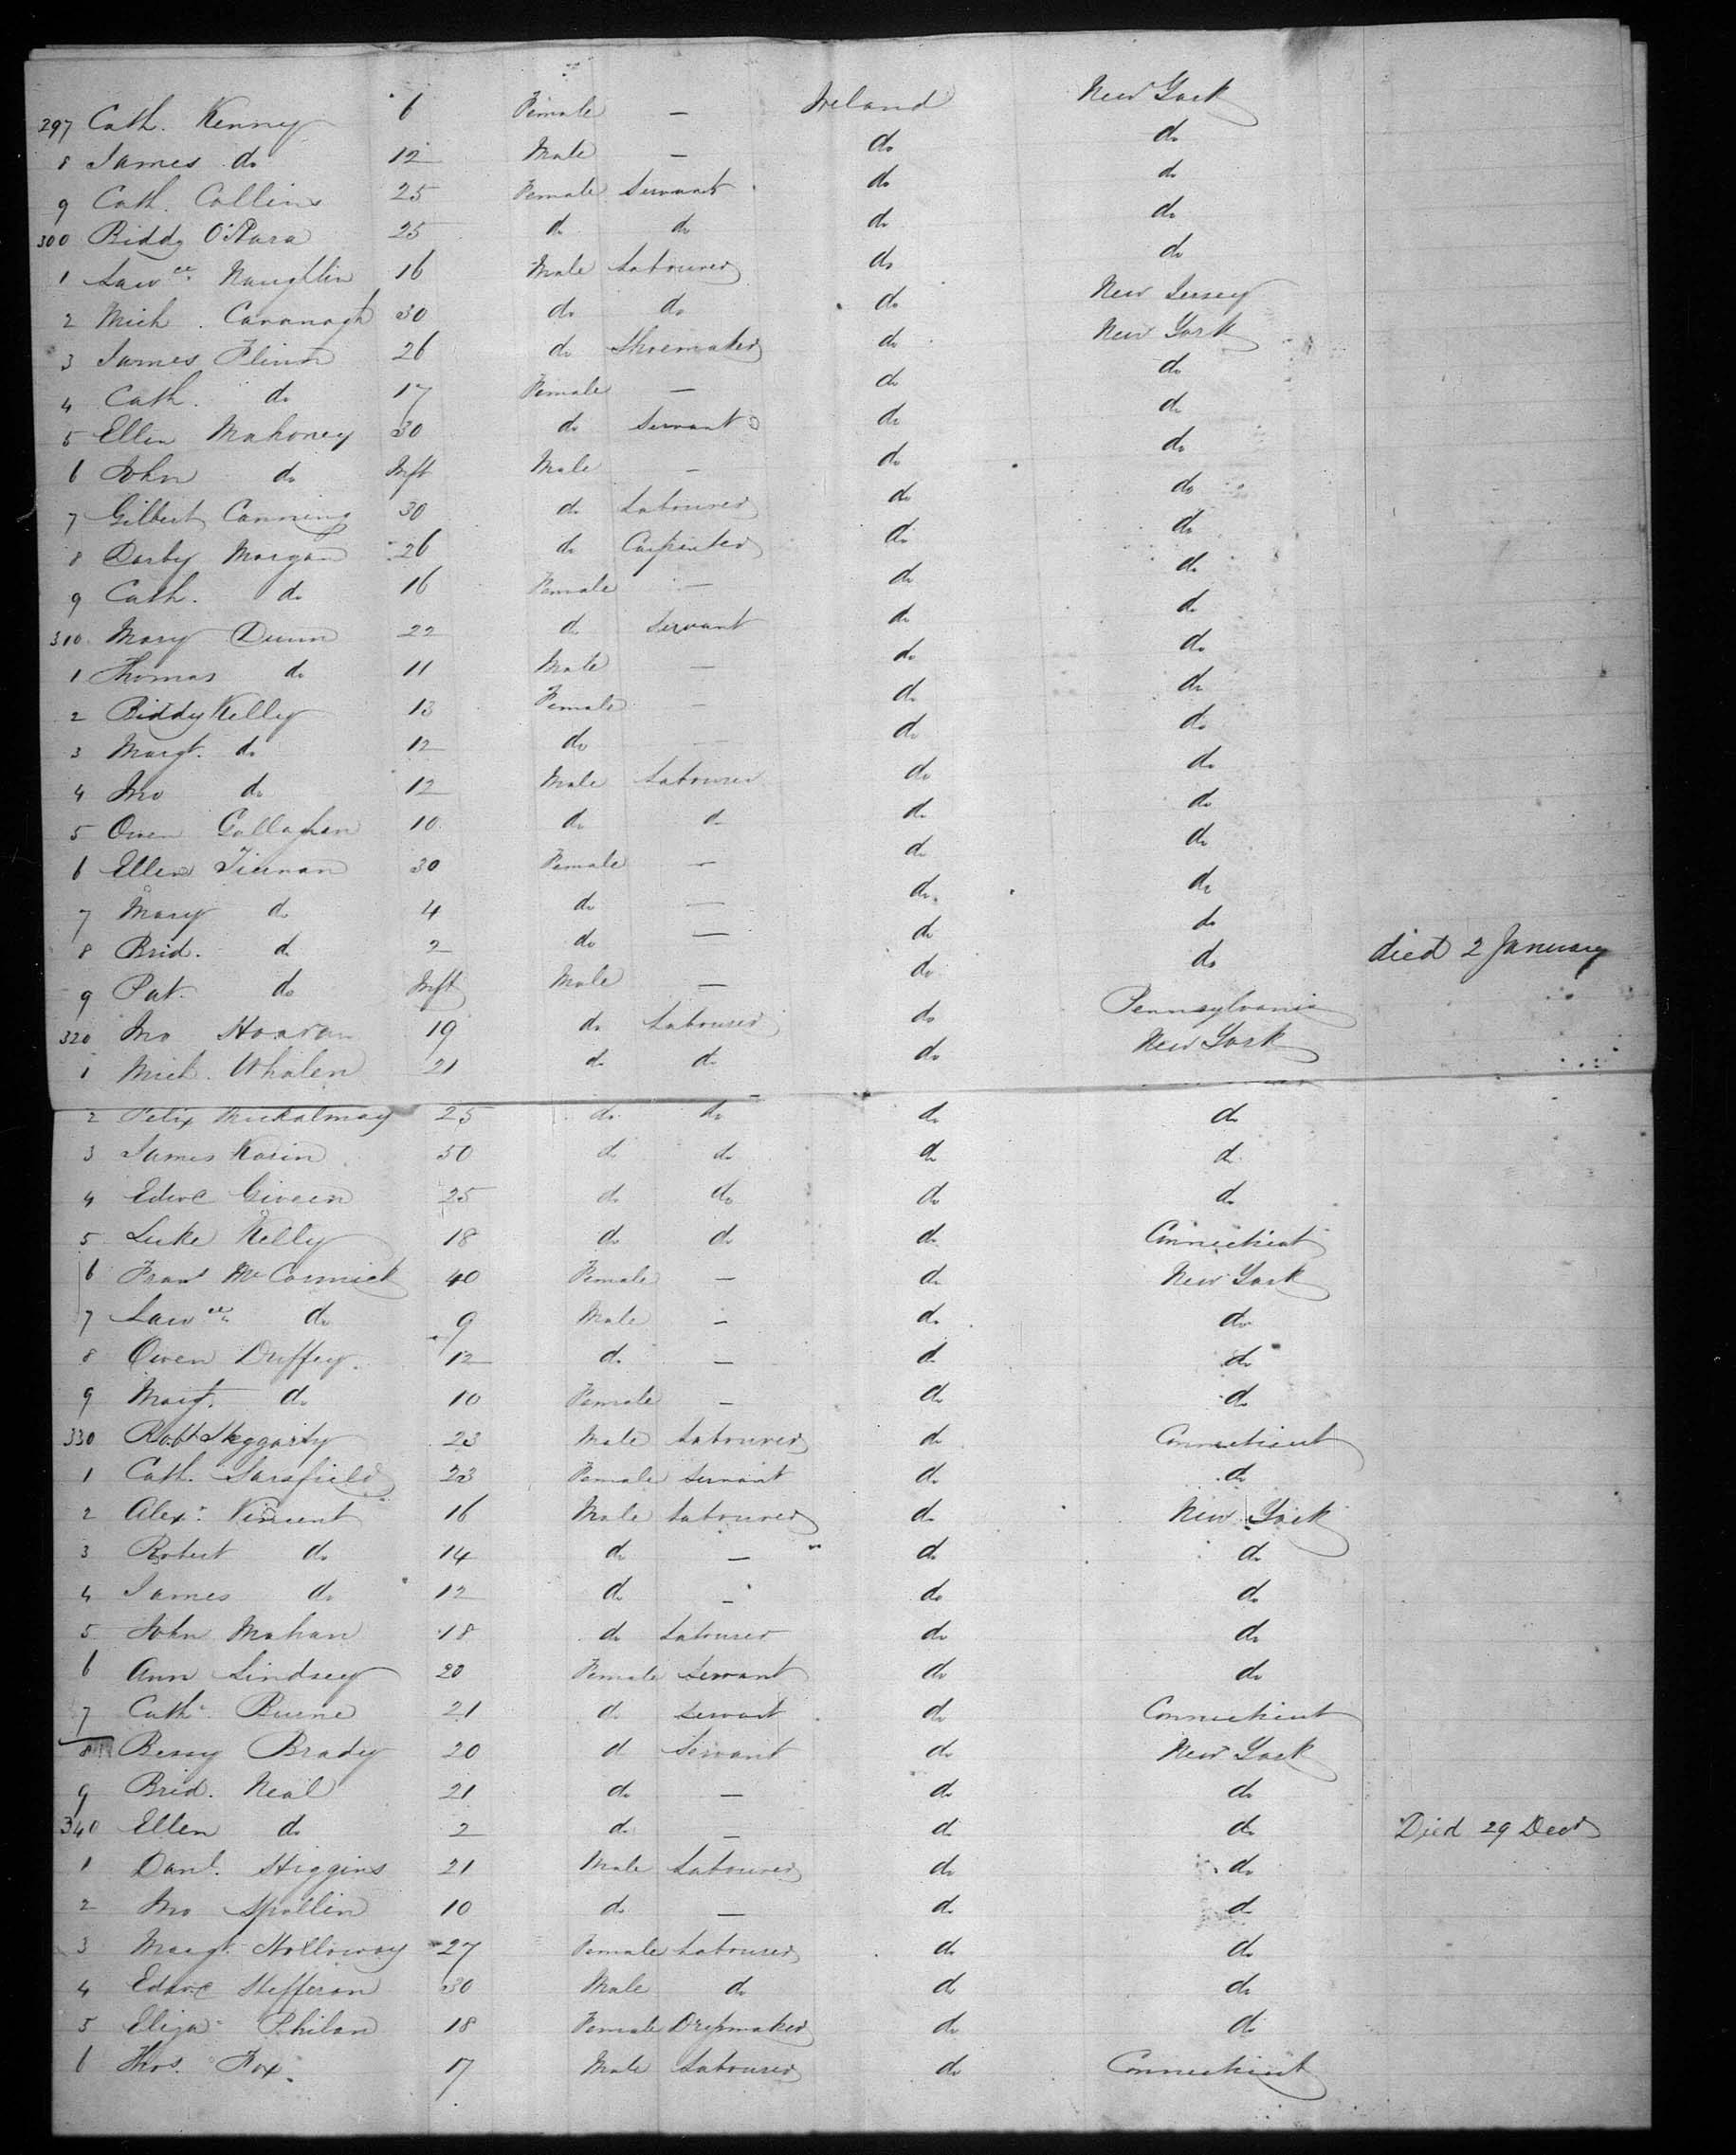 297 Cath. Kenny 6 Female — Ireland New York
8 James do 12 Male — do do
9 Cath. Collins 25 Female Servant do do
300 Biddy O'Hara 25 do do do do
1 Lawce. Naughtin 16 Male Labourer do do
2 Mich. Cavanagh 30 do do do New Jersey
3 James Flinn 26 do Shoemaker do New York
4 Cath. do 17 Female — do do
5 Ellen Mahoney 30 do Servant do do
6 John do Inft Male — do do
7 Gilbert Canning 30 do Labourer do do
8 Darby Morgan 26 do Carpenter do do
9 Cath. do 16 Female — do do
310 Mary Dunn 22 do Servant do do
1 Thomas do 11 Male — do do
2 Biddy Kelly 13 Female — do do
3 Margt. do 12 do — do do
4 Jno do 12 Male Labourer do do
5 Owen Gallaghen 10 do do do do
6 Ellen Tiernan 30 Female — do do
7 Mary do 4 do — do do
8 Brid. do 2 do — do do died 2 January
9 Pat. do Inft Male — do do
320 Jno 19 do Labourer do Pennsylvania
1 Mich. Whalen 21 do do do New York
2 Felix 25 do do do do
3 James 50 do do do do
4 Edwd Giveen 25 do do do do
5 Luke Kelly 18 do do do Connecticut
6 Frans McCormick 40 Female — do New York
7 Lawce. do 9 Male — do do
8 Owen Duffey 12 do — do do
9 Margt. do 10 Female — do do
330 Robt Heggarty 23 Male Labourer do Connecticut
1 Cath. Sarsfield 23 Female Servant do do
2 Alexr. Vincent 16 Male Labourer do New York
3 Robert do 14 do — do do
4 James do 12 do — do do
5 John Mahan 18 do Labourer do do
6 Ann Lindsey 20 Female Servant do do
7 Cath. Burne 21 do Servant do Connecticut
8 Bessy Brady 20 do Servant do New York
9 Brid. Neal 21 do — do do
340 Ellen do 2 do — do do Died 29 Decr
1 Danl. Higgins 21 Male Labourer do do
2 Jno Spollin 10 do — do do
3 Margt. Holloway 27 Female Labourer do do
4 Edwd Hefferon 30 Male do do do
5 Eliza Philan 18 Female Dressmaker do do
6 Thos. Fox 17 Male Labourer do Connecticut